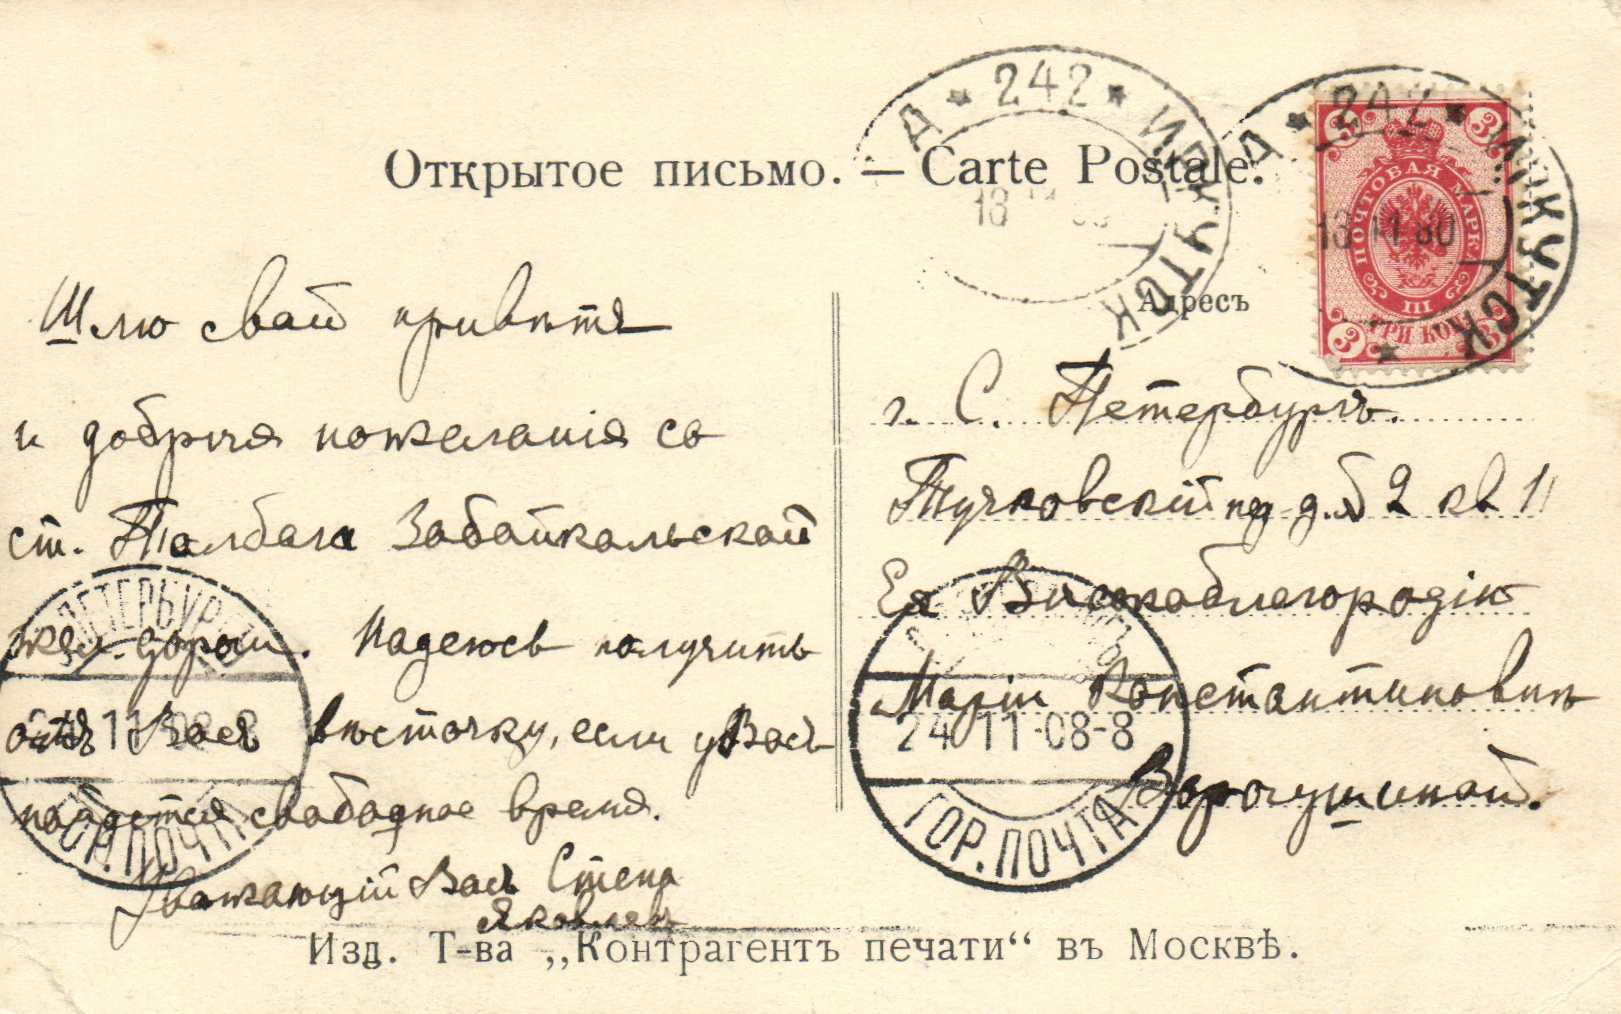 Открытое письмо. — Carte Postale.
А * 242 * ИРКУТСК
13 11
А * 242 * ИРКУТСК *
13 11
3 3
ПОЧТОВАЯ МАРКА
III
ТРИ КОП
3 3
Адресъ
Шлю свой привѣтъ
и добрыя пожеланія со
ст. Толбага Забайкальской
жел. дорог. Надеюсь получить
отъ Васъ вѣсточку, если у Васъ
найдется свободное время.
Уважающій Васъ Степа
Яковлевъ
г. С. Петербургъ.
Тучковскій пер д. № 2 кв 11
Ея Высокоблагородію
Маріи Константиновнѣ
Ворогушиной.
ПЕТЕРБУРГЪ
11-08-8
ГОР.ПОЧТА
24 11-08-8
ГОР.ПОЧТА
Изд. Т-ва „Контрагентъ печати“ въ Москвѣ.